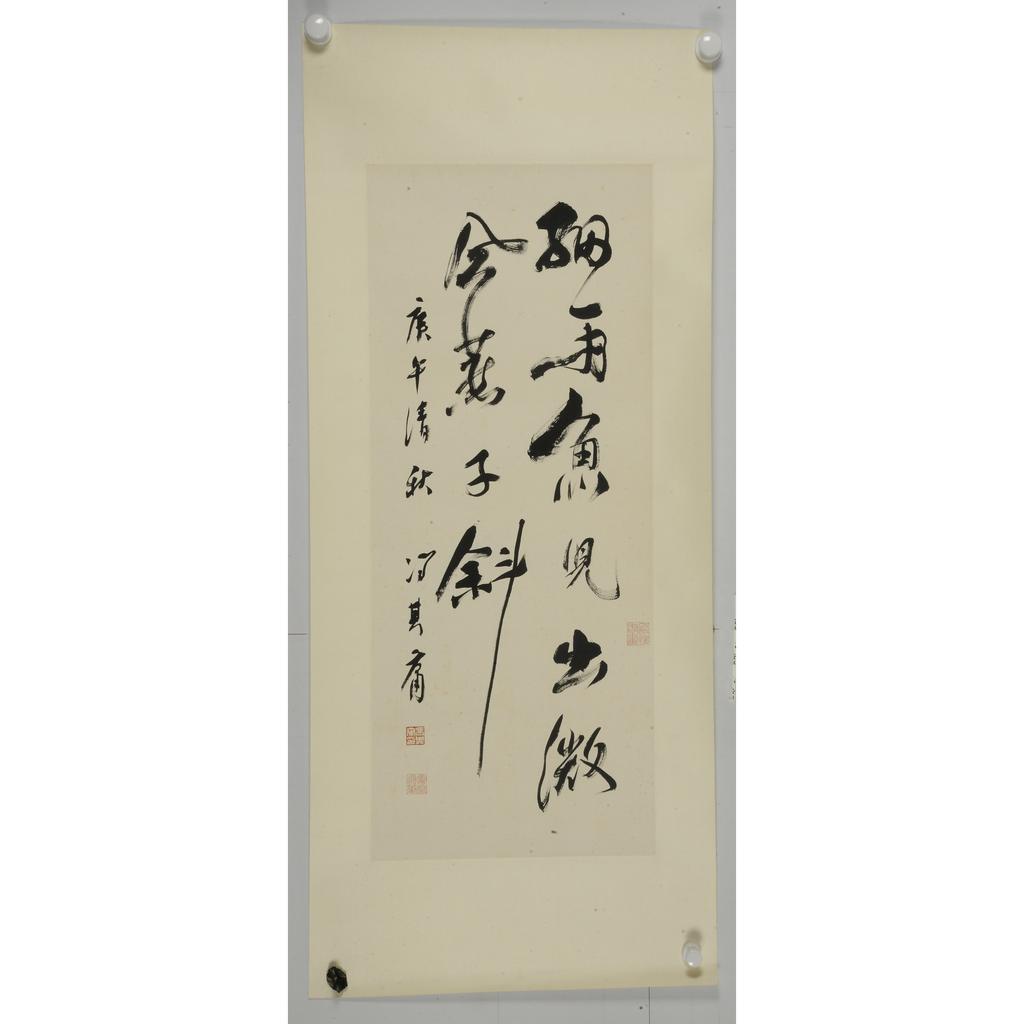 細雨魚兒出微
風燕子斜
庚午清秋 馮其庸